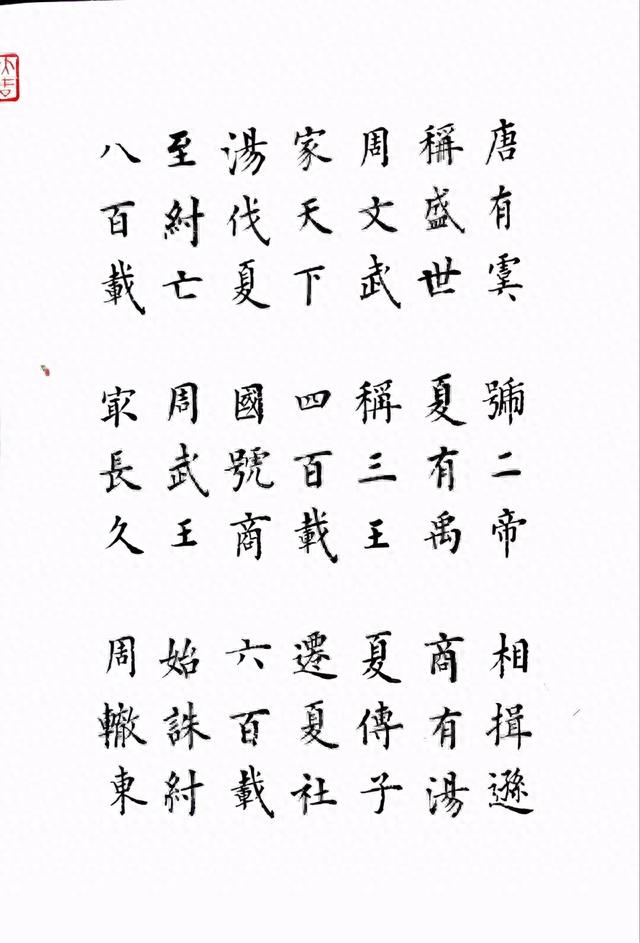 唐有虞 號二帝 相揖遜
稱盛世 夏有禹 商有湯
周文武 稱三王 夏傳子
家天下 四百載 遷夏社
湯伐夏 國號商 六百載
至紂亡 周武王 始誅紂
八百載 冣長久 周轍東